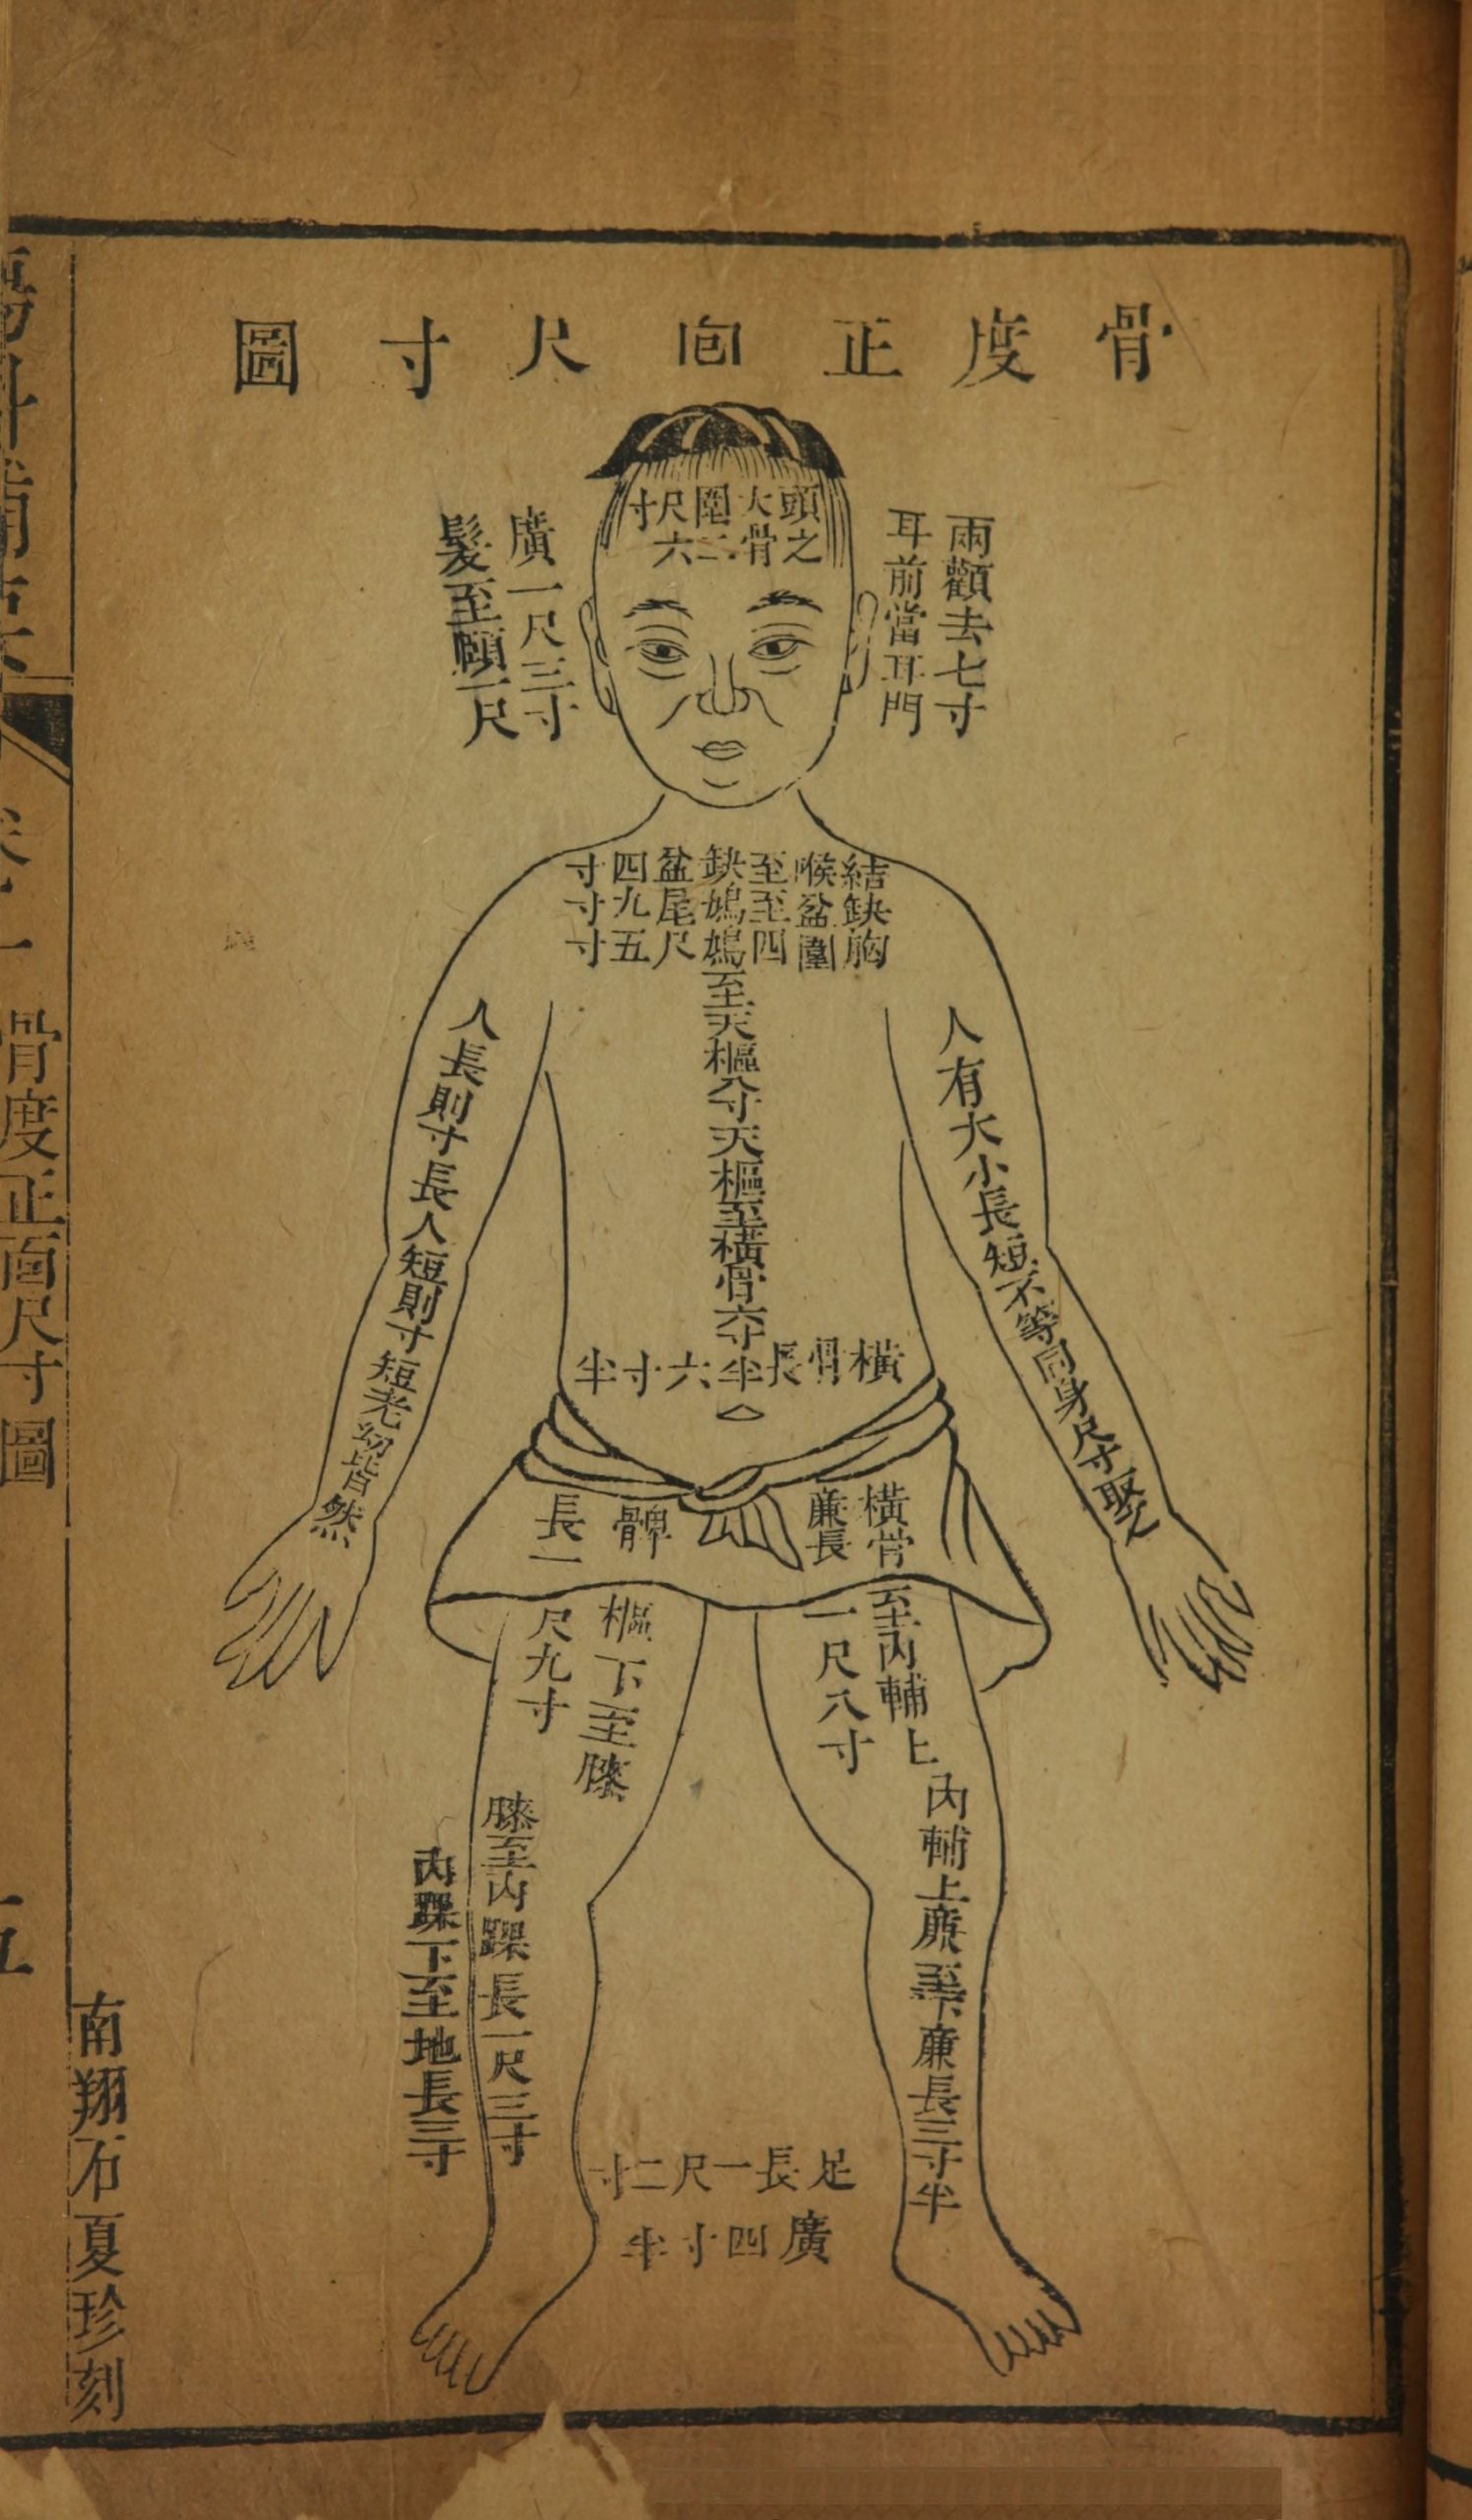 骨度正面尺寸圖
頭之大骨圍二尺六寸
兩顴去七寸
耳前當耳門
廣一尺三寸
髮至頤一尺
結喉至缺盆四寸
缺盆至鳩尾九寸
胸圍四尺五寸
鳩至天樞八寸天樞至橫骨六寸半
橫骨長六寸半
人有大小長短不等同身尺寸取之
人長則寸長人短則寸短老幼皆然
橫骨至內輔上
廉長一尺八寸
髀樞下至膝
長一尺九寸
內輔上廉至下廉長三寸半
膝至內踝長一尺三寸
內踝下至地長三寸
足長一尺二寸
廣四寸半
傷科補要
卷一
骨度正面尺寸圖
五
南翔石夏珍刻